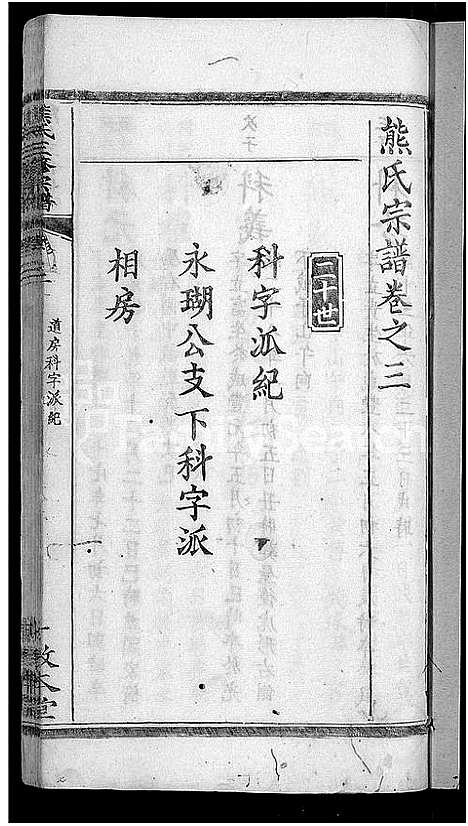 熊氏宗譜卷之三
二十世
科字派紀
永瑚公支下科字派
相房
熊氏三修宗譜
道房科字派紀
敦本堂